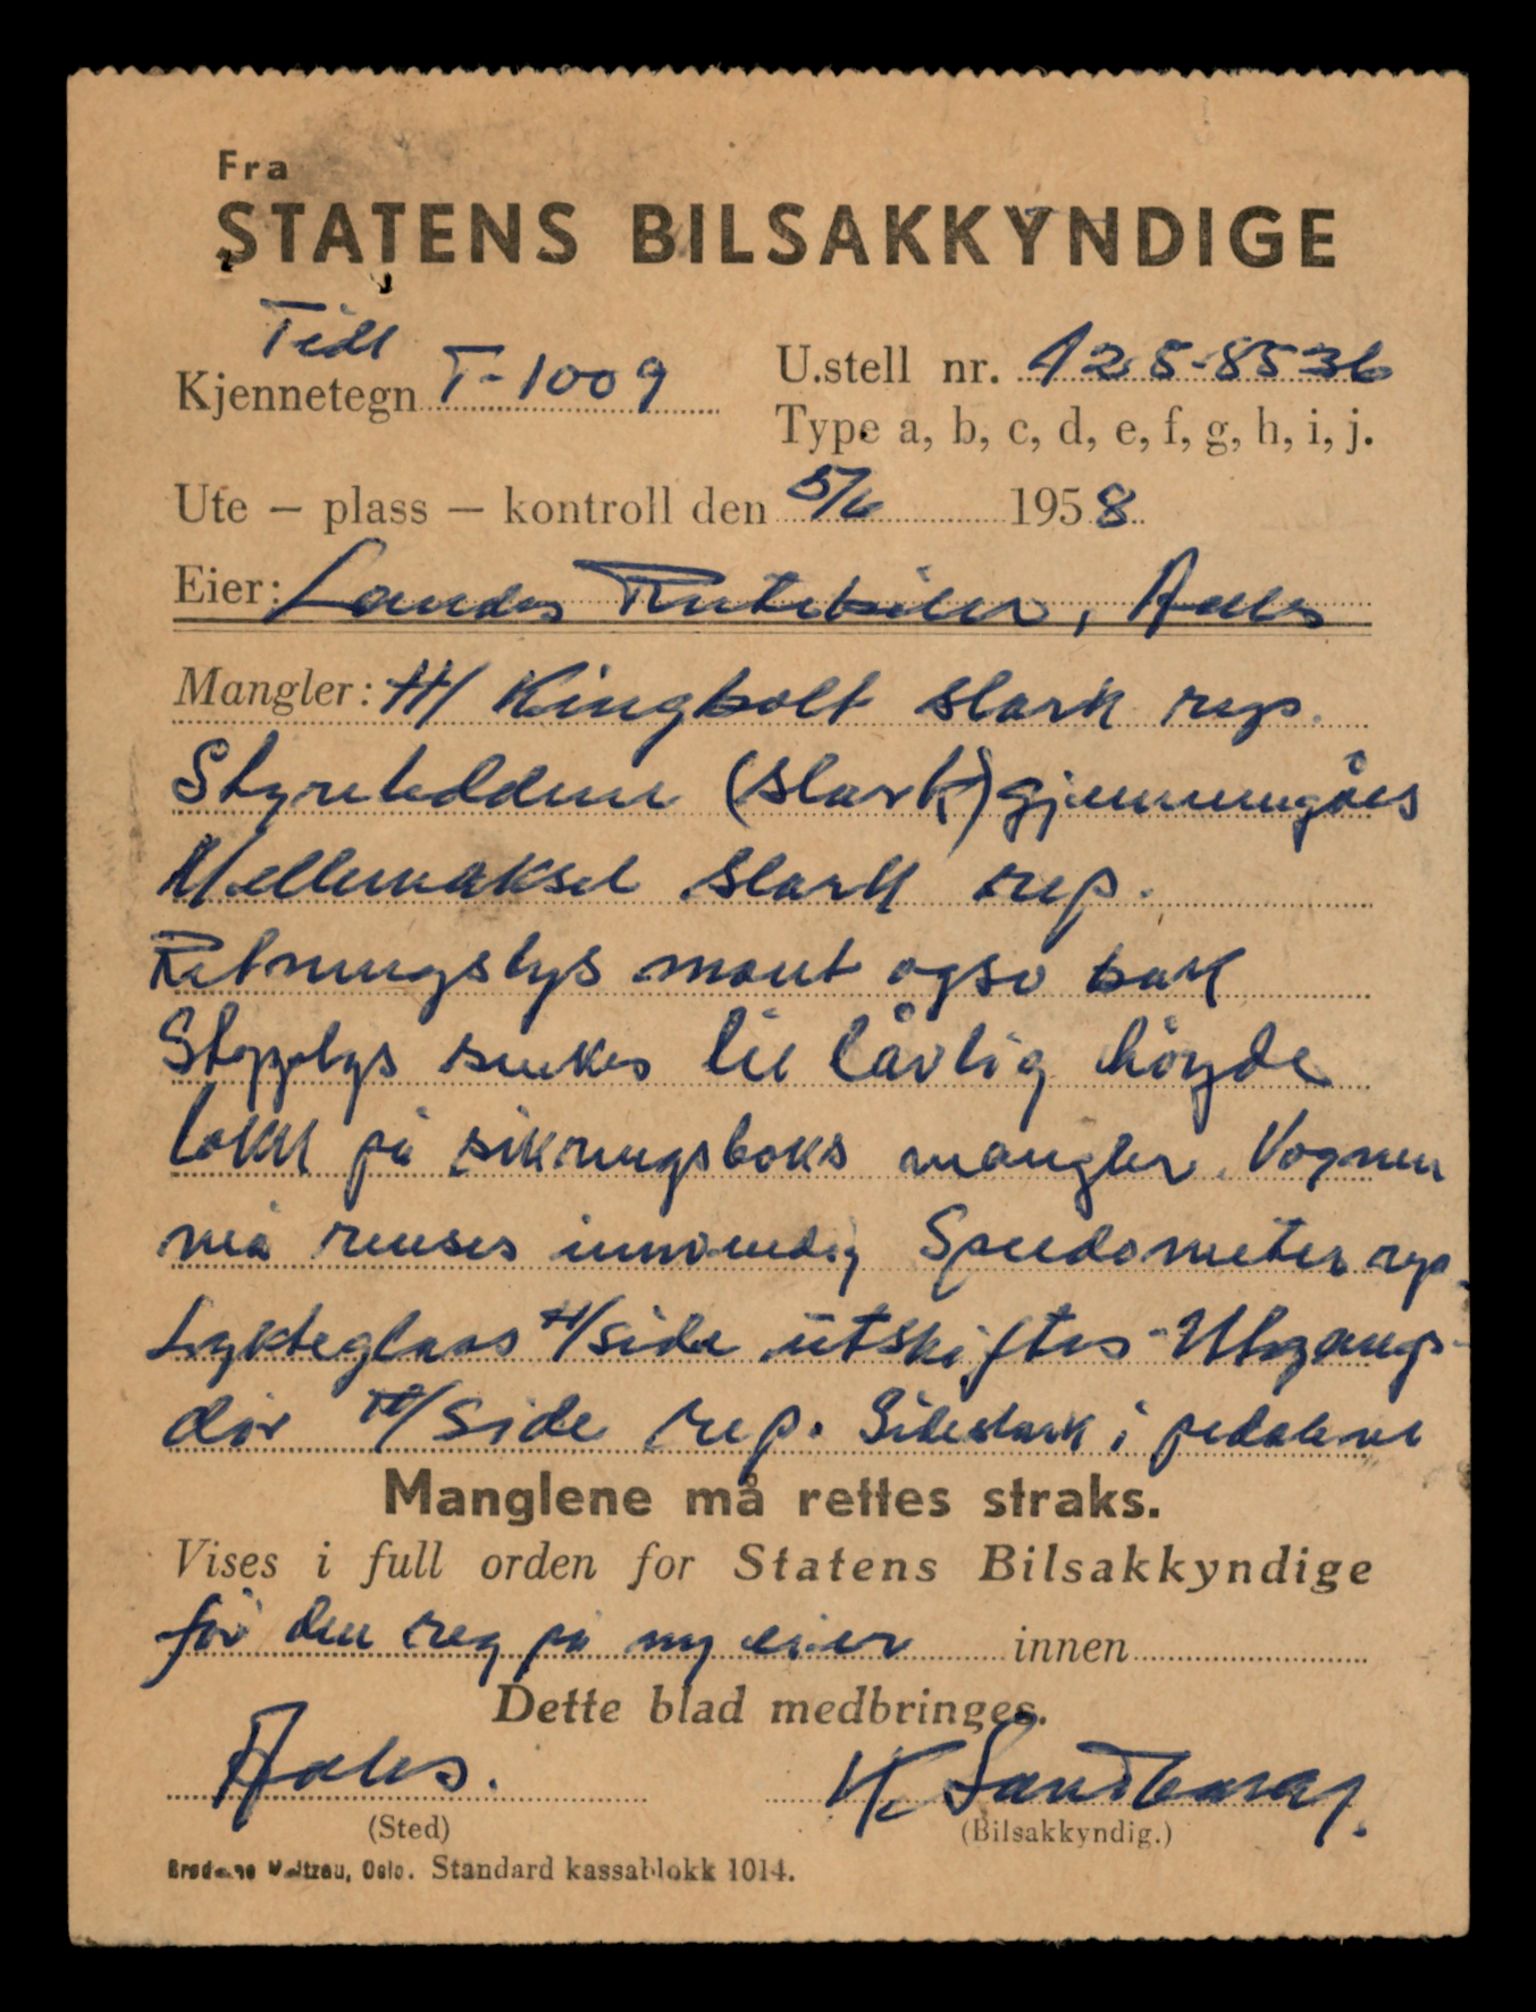 Fra
STATENS BILSAKKYNDIGE
Tidl
Kjennetegn T-1009
U.stell nr. 125-8536
Type a, b, c, d, e, f, g, h, i, j.
Ute – plass – kontroll den 5/6 1958
Eier: Landes Rutebiler,
Mangler: H/ Kingbolt slark rep.
Styreleddene (slark) gjennemgåes
Mellemaksel slark rep.
Retningslys mont også bak
Stopplys senkes til lovlig höyde
Lokk på sikringsboks mangler. Vognen
må renses innvendig Speedometer rep.
Lykteglass H/side utskiftes Utgangs-
dör H/side rep. Sideslark i pedalene
Manglene må rettes straks.
Vises i full orden for Statens Bilsakkyndige
för den reg på ny eier innen
Dette blad medbringes.
(Sted)
K. Sandberg.
(Bilsakkyndig.)
Brødrene Maltzau, Oslo. Standard kassablokk 1014.